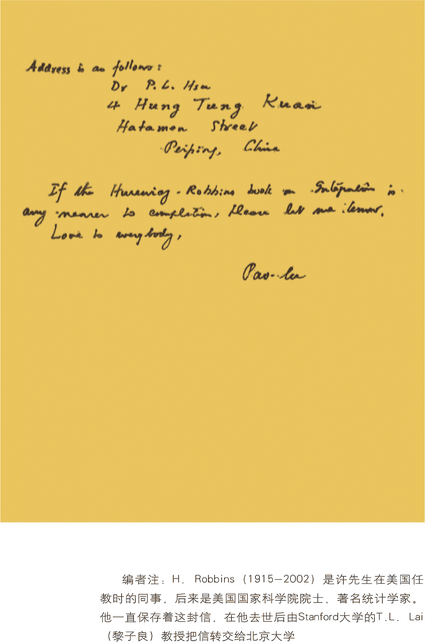 Address is as follows:
Dr P. L. Hsu
4 Hung Tung Kuan
Hatamen Street
Peiping, China
If the Hurewicz-Robbins book on Integration is
any nearer to completion, please let me know.
Love to everybody,
Pao-lu
编者注：H．Robbins（1915－2002）是许先生在美国任
教时的同事，后来是美国国家科学院院士、著名统计学家。
他一直保存着这封信，在他去世后由Stanford大学的T.L．Lai
（黎子良）教授把信转交给北京大学